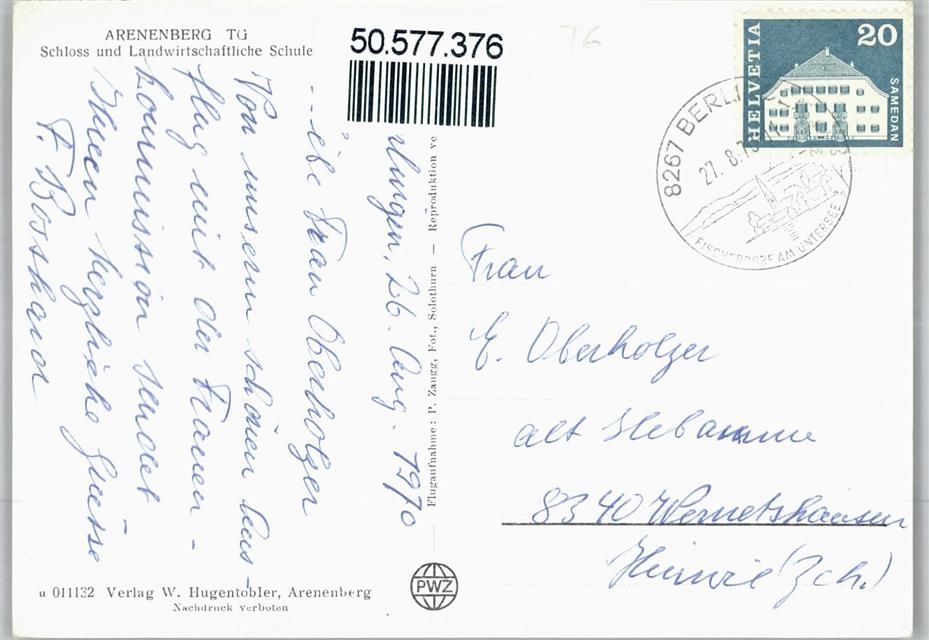 ARENENBERG TG
Schloss und Landwirtschaftliche Schule
50.577.376
HELVETIA
20
SAMEDAN
8267 BERLI
27. 8.7
FISCHERDORF AM UNTERSEE
lungen, 26. Aug. 1970
ebe Frau Oberholzer
Von unserm schönen Aus-
flug mit der Frauen-
kommission sendet
Ihnen herzliche Grüsse
F. Bosshard
Flugaufnahme: P. Zaugg, Fot., Solothurn — Reproduktion ve
Frau
E. Oberholzer
alt Hebamme
8340 Wernetshausen
Hinwil (Zch.)
u 011132 Verlag W. Hugentobler, Arenenberg
Nachdruck verboten
PWZ